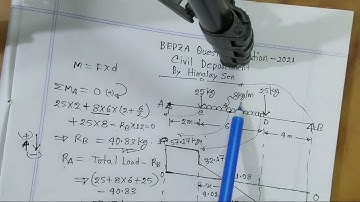 BEPZA Question 2021
Civil Department
By Himaloy Sen
M = F×d
ΣM_A = 0
25×2 + 8×6×(2+6/2)
+25×8 - R_B×12=0
⇒ R_B = 40.83 kg
R_A = Total Load - R_B
= (25+8×6+25)
- 40.83
25kg
8kg/m
25kg
A
C
D
B
2m
6
4m
57.17kg
32.17
0
x